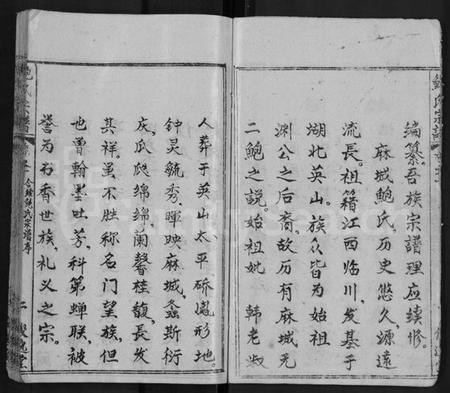 鲍氏宗谱
编纂。吾族宗谱理应续修。
麻城鲍氏历史悠久、源远
流长。祖籍江西临川、发基于
湖北英山。族众皆为始祖
渊公之后裔。故历有麻城无
二鲍之说始祖妣 韩老淑
人葬于英山太平硚凼形地。
钟灵毓秀、晖映麻城、螽斯衍
庆、瓜瓞绵绵、兰馨桂馥长发
其祥。虽不胜称名门望族。但
也曾翰墨吐芳、科第蝉联、被
誉为书香世族、礼义之宗。
合修鲍氏宗谱序
二